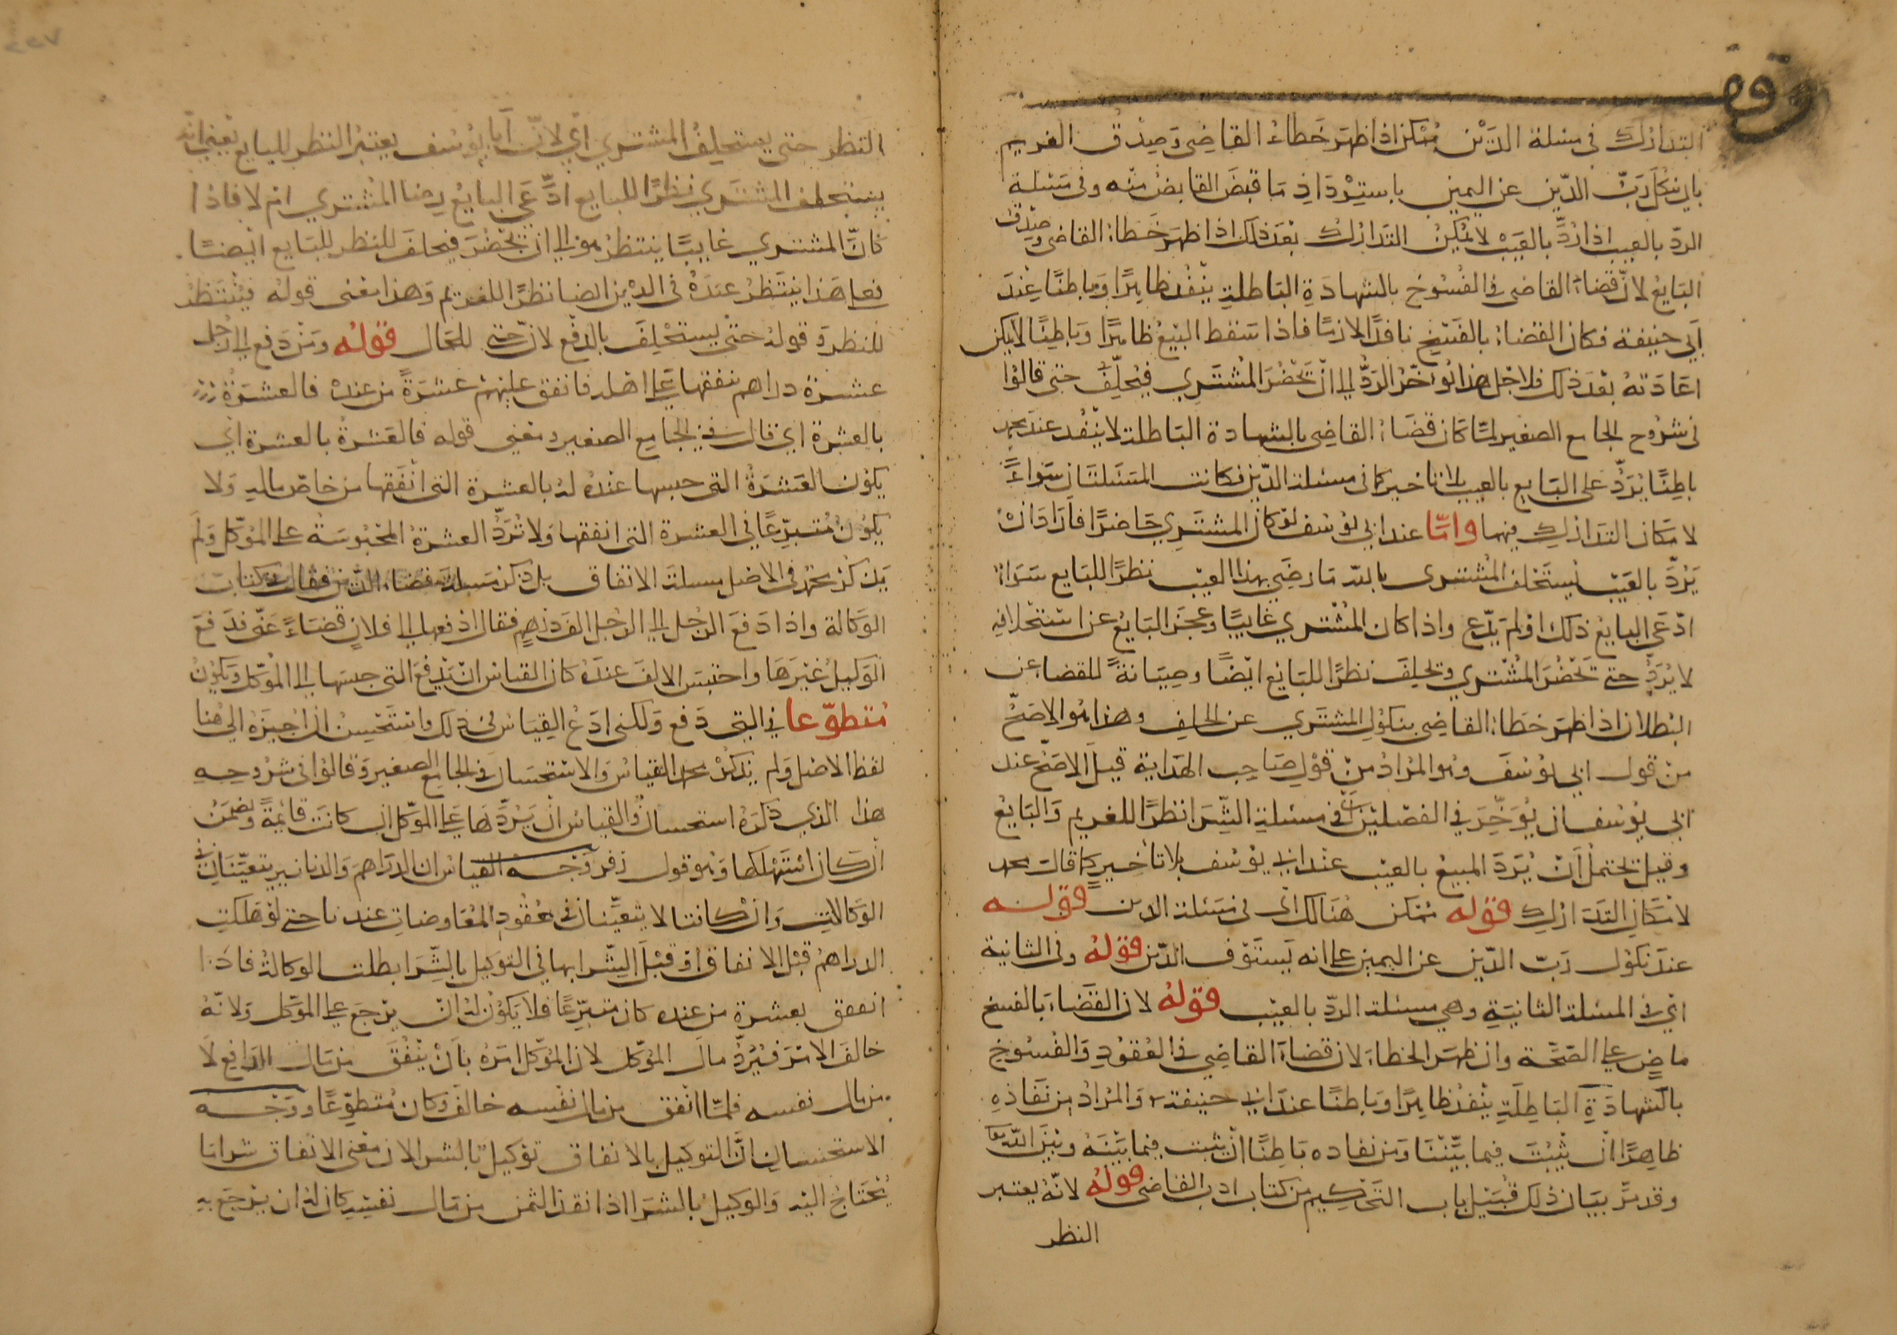 وقف
التدارك في مسئلة الدين ممكن اذا ظهر خطاء القاضي وصدق الغريم
بان نكل ربّ الدّين عن اليمين باسترداد ما قبض القابض منه وفي مسئلة
الردّ بالعيب اذا ردّ بالعيب لا يمكن التدارك بعد ذلك اذا ظهر خطاء القاضي وصدق
البايع لانّ قضاء القاضي في الفسوخ بالشهادة الباطلة ينفذ ظاهرًا وباطنًا عند
ابي حنيفة فكان القضاء بالفسخ نافذًا لازمًا فاذا سقط البيع ظاهرًا وباطنًا لا يمكن
اعادته بعد ذلك فلاجل هذا يؤخر الردّ الى ان يحضر المشتري فيحلّف حتى قالوا
في شروح الجامع الصغير لمّا كان قضاء القاضي بالشهادة الباطلة لا ينفذ عند محمد
باطنًا يردّ على البايع بالعيب بلا تاخير كما في مسئلة الدّين فكانت المسئلتان سواءً
لامكان التدارك فيهما وامّا عند ابي يوسف لو كان المشتري حاضرًا فاراد ان
يردّ بالعيب يستحلف المشتري بالله ما رضي بهذا العيب نظرًا للبايع سواء
ادّعى البايع ذلك او لم يدّع واذا كان المشتري غايبًا وعجز البايع عن استحلافه
لا يردّ حتى يحضر المشتري ويحلف نظرًا للبايع ايضًا وصيانةً للقضاء عن
البطلان اذا ظهر خطاء القاضي بنكول المشتري عن الحلف وهذا هو الاصحّ
من قول ابي يوسف وهو المراد من قول صاحب الهداية قيل الاصحّ عند
ابي يوسف ان يؤخّر في الفصلين اي في مسئلة الشرا نظرًا للغريم والبايع
وقيل يحتمل ان يردّ المبيع بالعيب عند ابي يوسف بلا تاخير كما قالت محمد
لامكان التدارك قوله ممكن هنالك اي في مسئلة الدين قوله
عند نكول ربّ الدّين عن اليمين على انه يستوف الدّين قوله وفي الثانية
اي في المسئلة الثانية وهي مسئلة الردّ بالعيب قوله لان القضاء بالفسخ
ماضٍ على الصّحّة وان ظهر الخطاء لان قضاء القاضي في العقود والفسوخ
بالشهادة الباطلة ينفذ ظاهرًا وباطنًا عند ابي حنيفة والمراد من نفاذه
ظاهرًا ان يثبت فيما بيننا ومن نفاده باطنًا ان يثبت فيما بينه وبين الله تعا
وقد مرّ بيان ذلك قبيل باب التحكيم من كتاب ادب القاضي قوله لانّه يعتبر
النظر
النظر حتى يستحلف المشتري اي لانّ ابا يوسف يعتبر النظر للبايع يعني انه
يستحلف المشتري نظرًا للبايع ادّعى البايع رضا المشتري ام لا فاذا
كان المشتري غايبًا ينتظر هو الى ان يحضر فيحلف للنظر للبايع ايضًا
فعلى هذا ينتظر عنده في الدين ايضا نظرًا للغريم وهذا معنى قوله ينتظر
للنظر وقوله حتى يستحلف بالدفع لان حتى للحال قوله ومن دفع الى رجل
عشرة دراهم ينفقها على اهله فانفق عليهم عشرةً من عنده فالعشرة
بالعشرة اي قال في الجامع الصغير ومعنى قوله فالعشرة بالعشرة اي
يكون العشرة التي حبسها عنده له بالعشرة التي انفقها من خاصّ ماله ولا
يكون متبرّعًا في العشرة التي انفقها ولا تردّ العشرة المحبوسة على الموكّل ولم
يذكر محمد في الاصل مسئلة الانفاق بل ذكر مسئلة قضاء الدّين فقال في كتاب
الوكالة واذا دفع الرجل الى الرجل الف درهم فقال ادفعها الى فلان قضاءً عنّي فدفع
الوكيل غيرها واحتبس الالف عنده كان القياس ان يدفع التي حبسها الى الموكّل ويكون
متطوّعا في التي دفع ولكني ادع القياس في ذلك واستحسن ان اجيزه الى هنا
لفظ الاصل ولم يذكر محمد القياس والاستحسان في الجامع الصغير وقالوا في شروحه
هذا الذي ذكره استحسان والقياس ان يردّها على الموكّل ان كانت قائمةً ويضمن
ان كان استهلكها وهو قول زفر وجه القياس ان الدراهم والدنانير يتعيّنان في
الوكالات وان كانتا لا يتعيّنان في عقود المعاوضات عندنا حتى لو هلكت
الدراهم قبل الانفاق او قبل الشرا بها في التوكيل بالشرا بطلت الوكالة فاذا
انفق بعشرة من عنده كان متبرّعًا فلا يكون له ان يرجع على الموكّل ولانّه
خالف الامر فيردّ مال الموكّل لان الموكّل امره بان ينفق من مال الدافع لا
من مال نفسه فلمّا انفق من مال نفسه خالف وكان متطوّعًا ووجه
الاستحسان انّ التوكيل بالانفاق توكيل بالشرا لان معنى الانفاق شرا ما
يحتاج اليه والوكيل بالشرا اذا نقد الثمن من مال نفسه كان له ان يرجع به